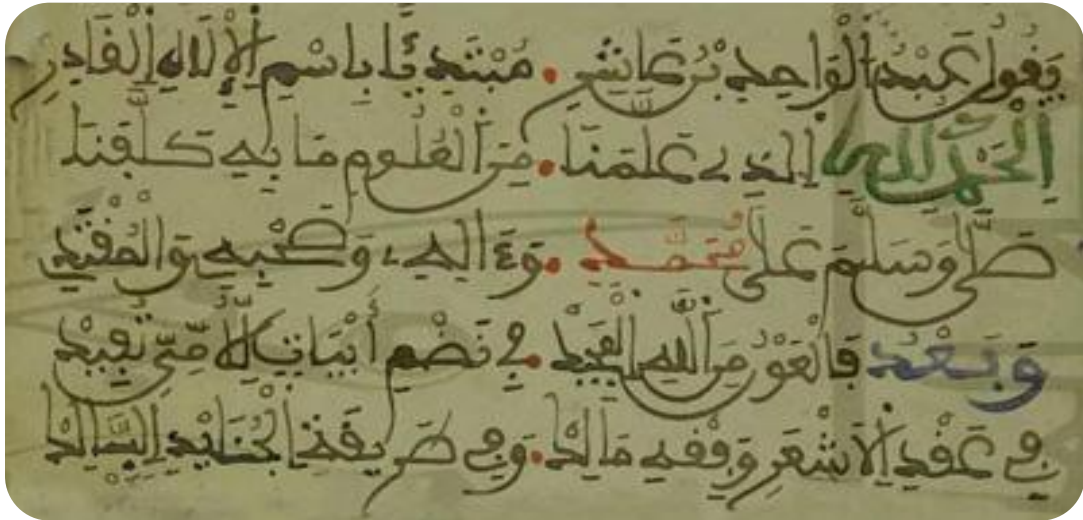 يَقُولُ عَبْدُ الْوَاحِدِ بْنُ عَاشِرِ . مُبْتَدِئًا بِاسْمِ الْإِلَهِ الْقَادِرِ
الْحَمْدُ لِلَّهِ الَّذِي عَلَّمَنَا . مِنَ الْعُلُومِ مَا بِهِ كَلَّفَنَا
صَلَّى وَسَلَّمَ عَلَى مُحَمَّدٍ . وَءَالِهِ وَصَحْبِهِ وَالْمُقْتَدِي
وَبَعْدُ فَالْعَوْنُ مِنَ اللَّهِ الْمَجِيدْ . فِي نَظْمِ أَبْيَاتٍ لِلْأُمِّيِّ تُفِيدْ
فِي عَقْدِ الْأَشْعَرِي وَفِقْهِ مَالِكْ . وَفِي طَرِيقَةِ الْجُنَيْدِ السَّالِكْ